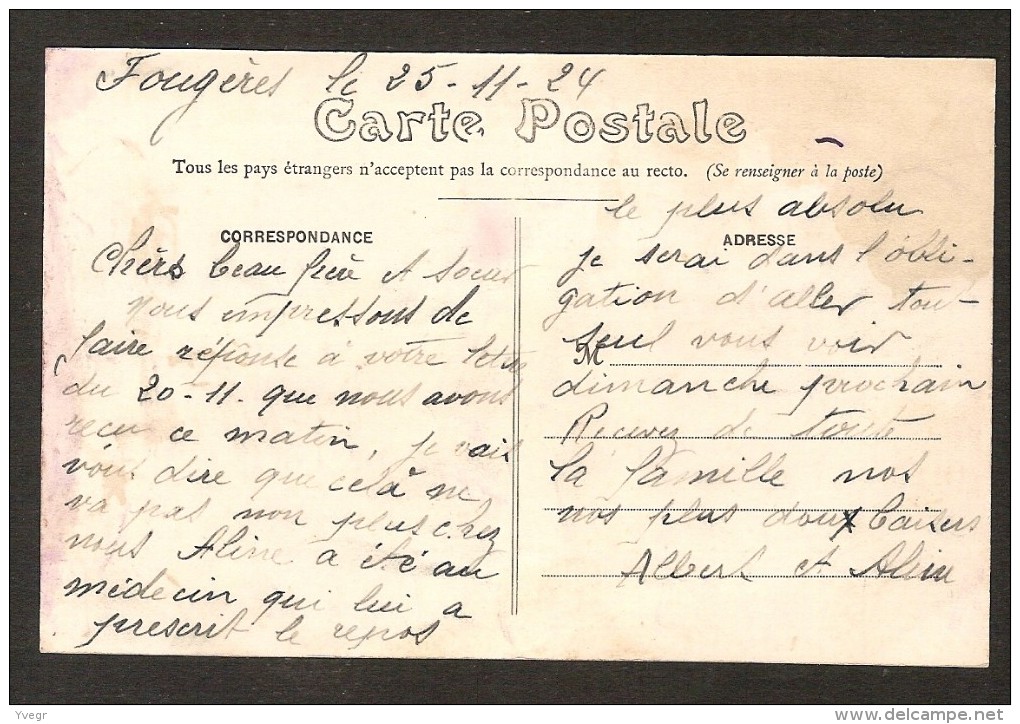 Fougères le 25-11-24
Carte Postale
Tous les pays étrangers n'acceptent pas la correspondance au recto. (Se renseigner à la poste)
CORRESPONDANCE
Chers beau frère et soeur
nous empressons de
faire réponse à votre lettre
du 20-11. que nous avons
reçu ce matin, je vais
vous dire que celà ne
va pas non plus chez
nous Aline a été au
médecin qui lui a
prescrit le repos
le plus absolu
ADRESSE
je serai dans l'obli-
gation d'aller tout
seul vous voir
M
dimanche prochain
Recevez de toute
la famille nos
nos plus doux baisers
Albert et Aline
Yvegr
delcampe.net